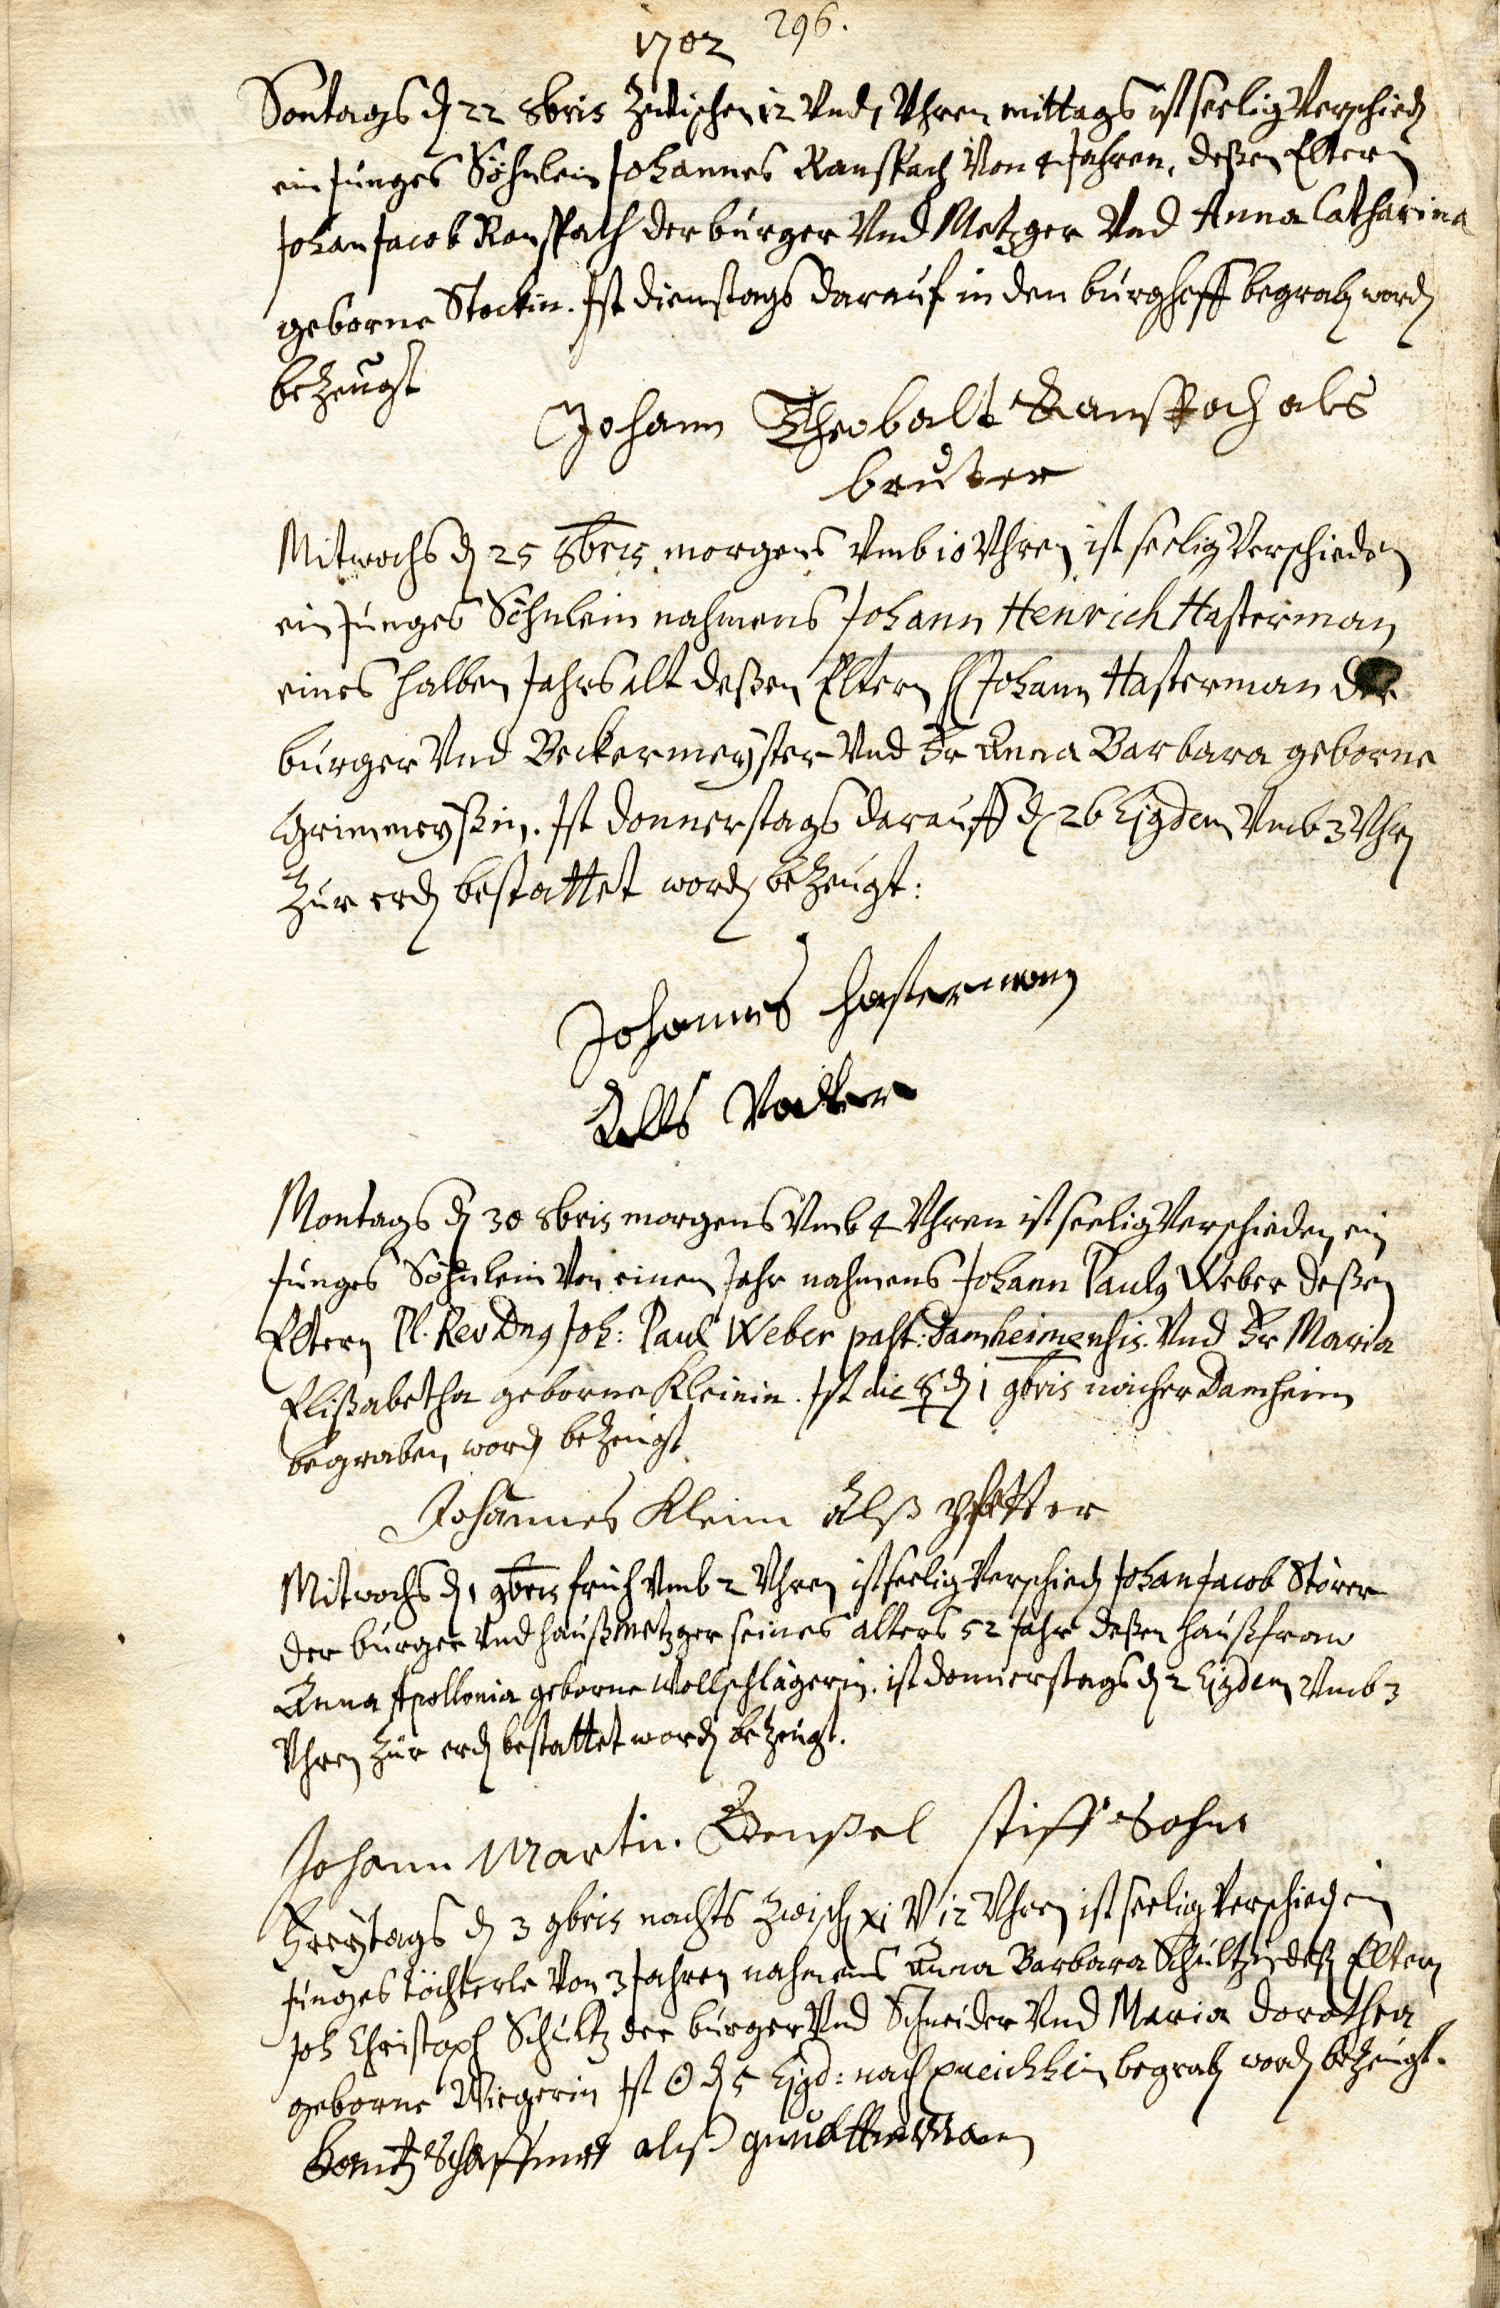 296.
1702
Sontags d 22 8bris Zwischen 12 Vnd 1 Vhren mittags ist seelig Verschied
ein Junges Söhnlein Johannes Ranspach Von 4 Jahren, deßen Eltern
Johan Jacob Ranspach der burger Vnd Metzger Vnd Anna Catharina
geborne Stockin. Ist dienstags darauf in den burghoff begrab word
beZeugt
Johann Theobalt Ranspach als
bruter
Mitwochs d 25 8bris morgens Vmb 10 Vhren ist seelig Verschieden
ein Junges Söhnlein nahmens Johann Henrich Hasterman
eines halben Jahrs alt deßen Eltern H Johann Hasterman der
burger Vnd Beckermeyster Vnd Fr Anna Barbara geborne
Grimmeyßin. Ist donnerstags darauff d 26 Ejusdem Vmb 3 Vhr
Zur erd bestattet word beZeugt:
Johannes Hasterman
Alls Vatter
Montags d 30 8bris morgens Vmb 4 Vhren ist seelig Verschieden ein
Junges Söhnlein Von einem Jahr nahmens Johann Paulus Weber deßen
Eltern Pl. Rev Dnus Joh: Paul Weber past: Damheimensis. Vnd Fr Maria
Elisabetha geborne Kleinin. Ist die d 1 9bris naicher Damheim
begraben word beZeugt
Johannes Klein Alß pfetter
Mitwochs d 1 9bris früh Vmb 2 Vhren ist seelig Verschied Johan Jacob Störer
der burger Vnd haußmetzger seines alters 52 Jahr deßen haußfraw
Anna Apollonia geborne Wollschlägerin. ist donnerstags d 2 Ejusdem Vmb 3
Vhren Zur erd bestattet word beZeugt.
Johann Martin stiff Sohn
Freytags d 3 9bris nachts Zwisch xi V 12 Vhren ist seelig Verschied ein
Junges töchterle Von 3 Jahren nahmens Anna Barbara Schultzin deß Eltern
Joh Christoph Schultz der burger Vnd Schneider Vnd Maria dorothea
geborne Wiegerin Ist ☉ d 5 Ejusd: nach begrab word beZeugt.
alß